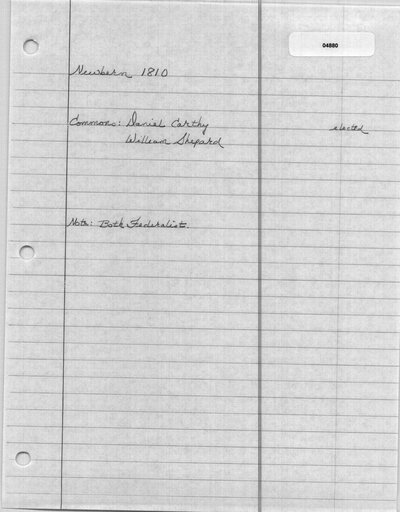 04880
Newbern 1810
Commons: Daniel Carthy elected
William Shepard
Note: Both Federalists.